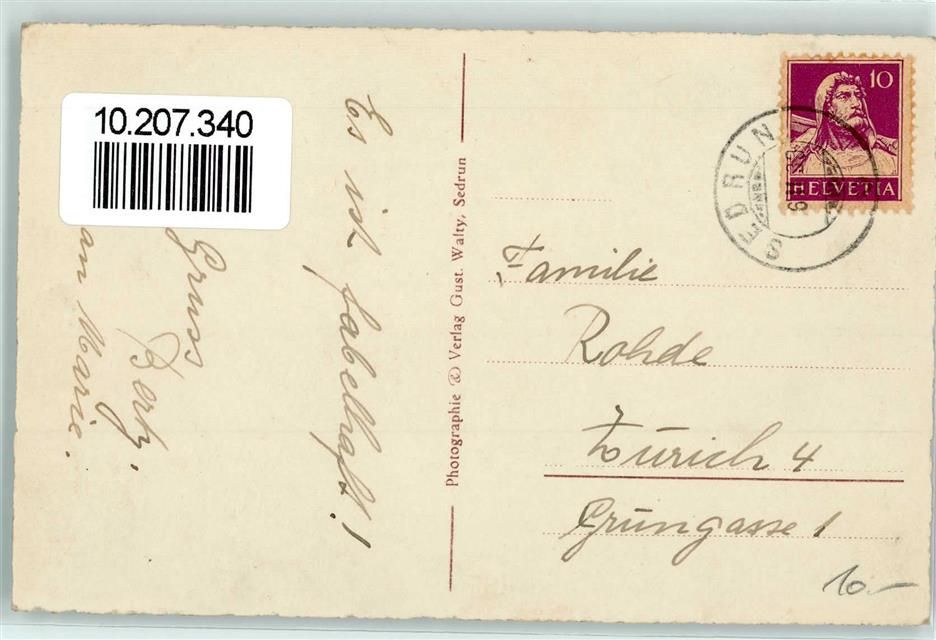 10.207.340
Es ist fabelhaft!
Gruss
an Marie.
Photographie & Verlag Gust. Walty, Sedrun
10
HELVETIA
SEDRUN
Familie
Rohde
Zürich 4
Grüngasse 1
10.-